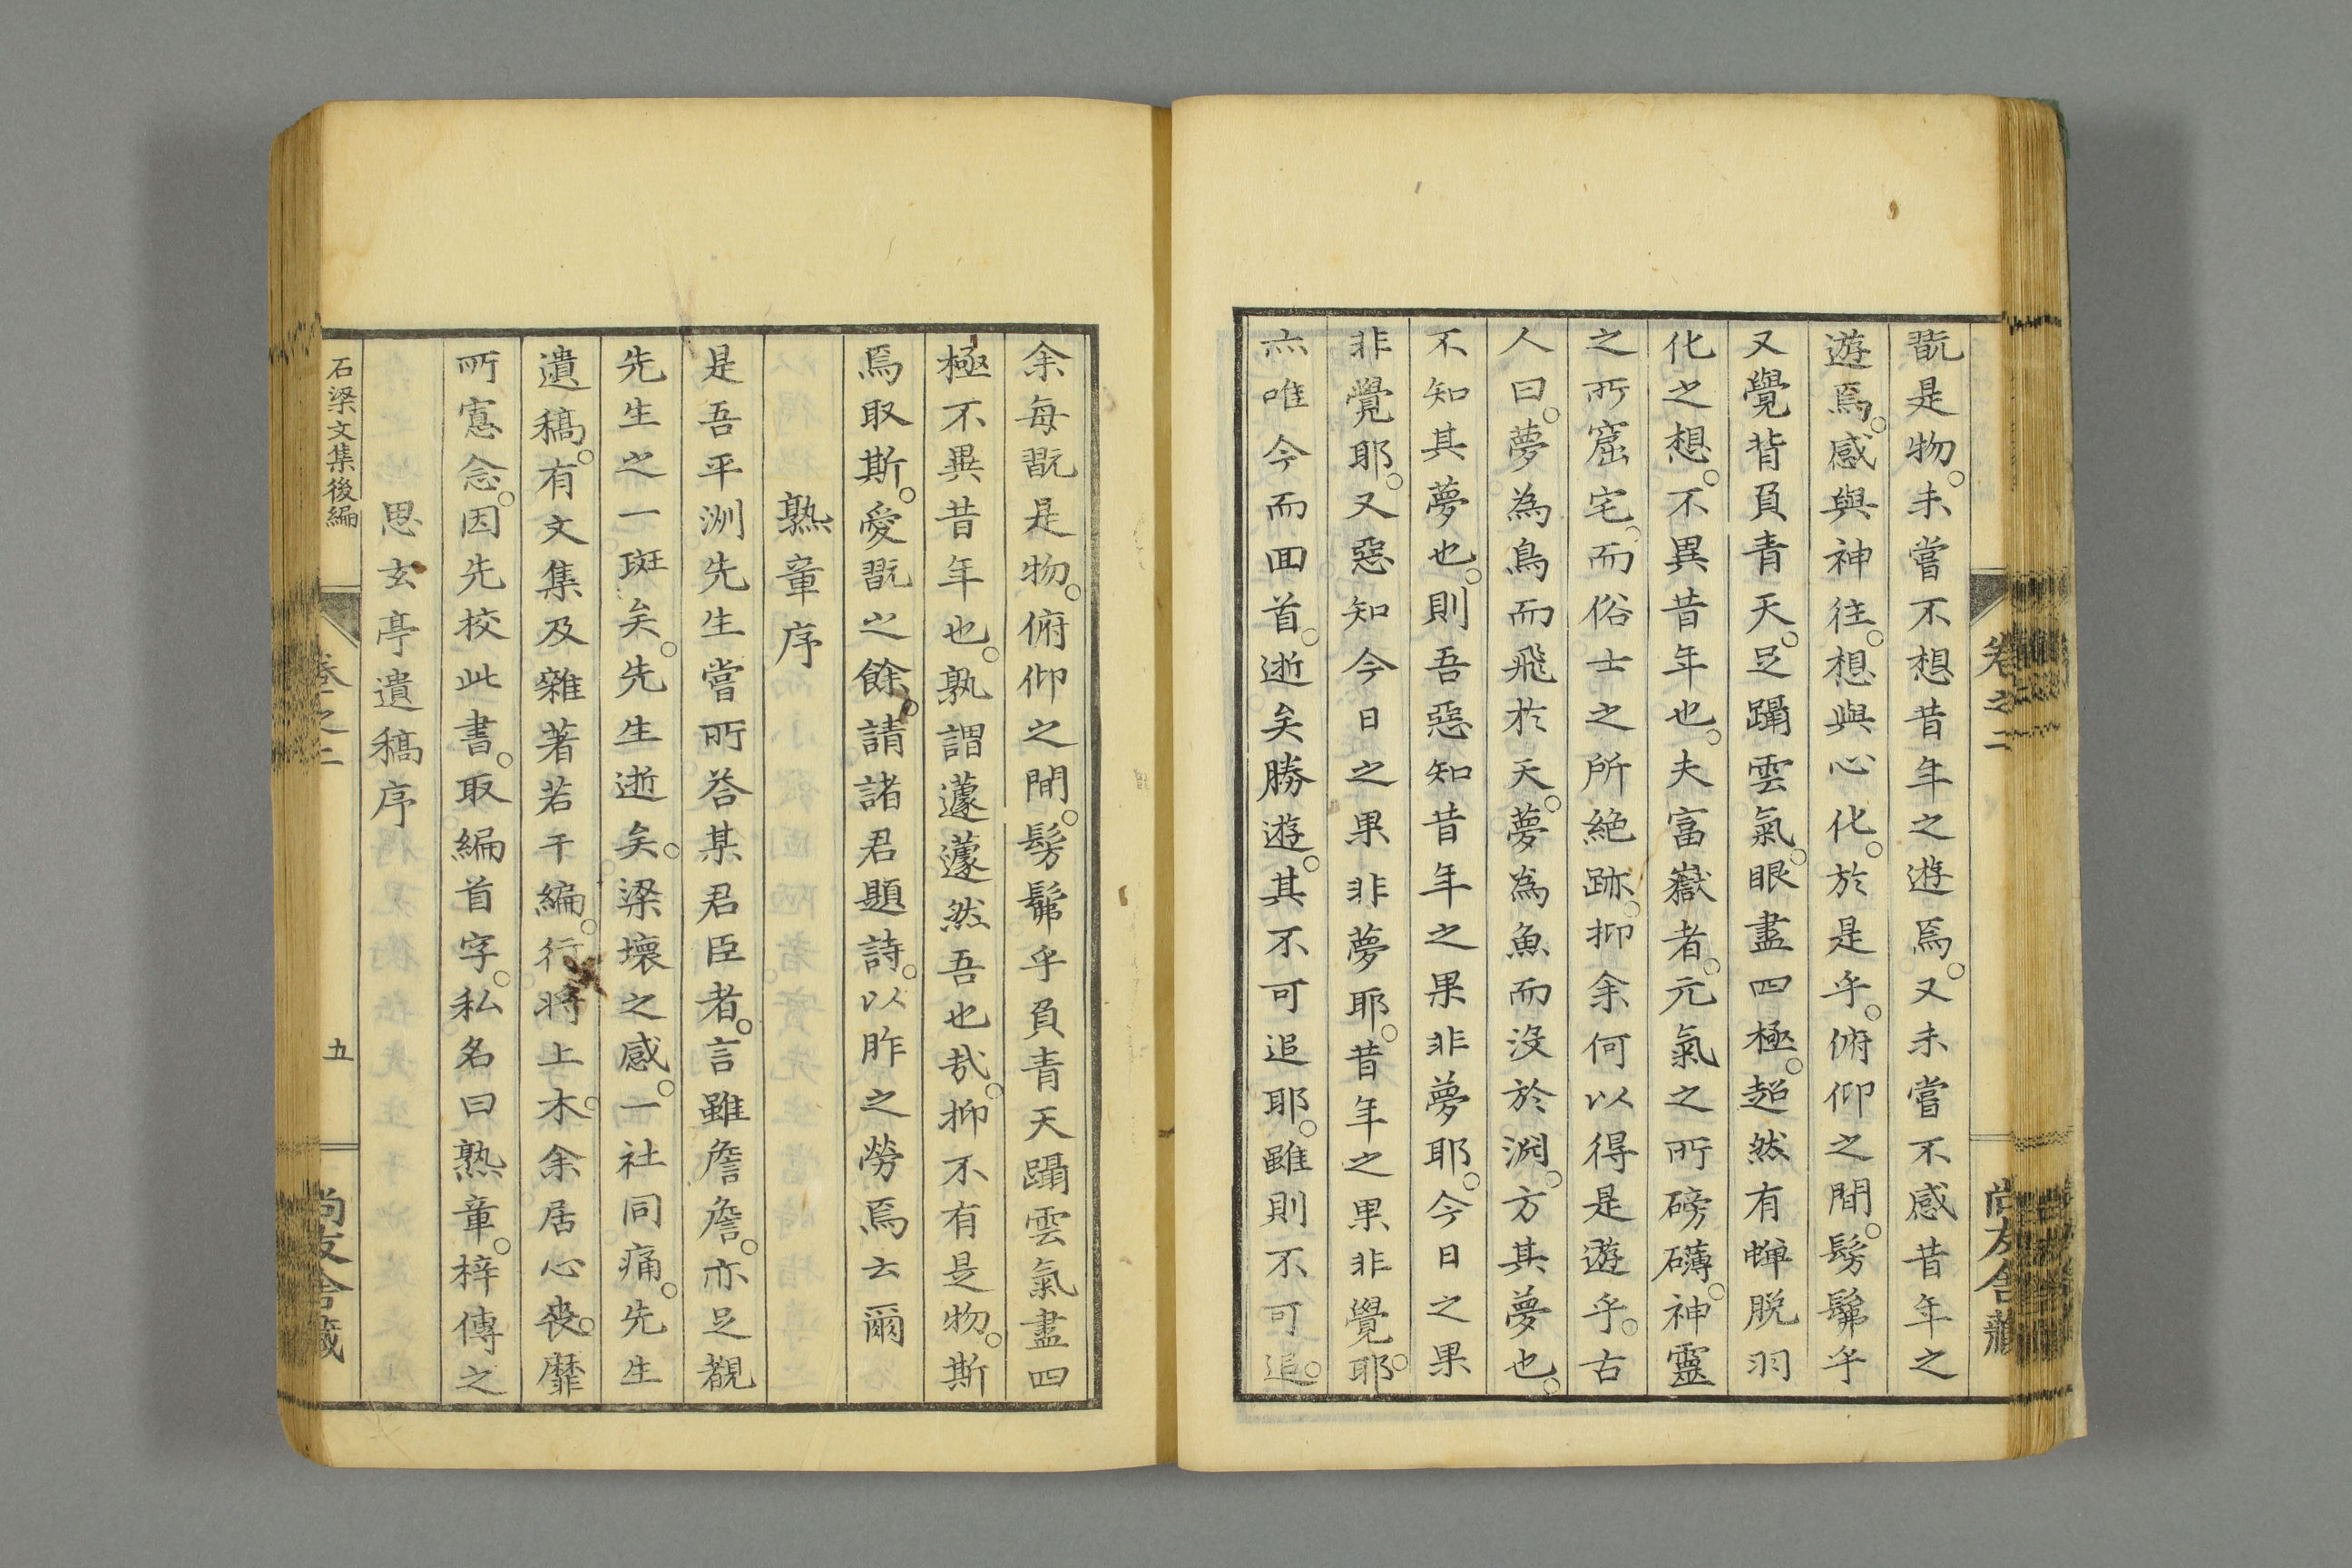 卷之二
尚友舍藏
翫是物。未嘗不想昔年之遊焉。又未嘗不感昔年之
遊焉。感與神往。想與心化。於是乎。俯仰之間。髣髴乎
又覺背負青天。足躡雲氣。眼盡四極。超然有蟬脱羽
化之想。不異昔年也。夫富嶽者。元氣之所磅礴。神靈
之所窟宅。而俗士之所絶跡。抑余何以得是遊乎。古
人曰。夢為鳥而飛於天。夢為魚而沒於淵。方其夢也。
不知其夢也。則吾惡知昔年之果非夢耶。今日之果
非覺耶。又惡知今日之果非夢耶。昔年之果非覺耶。
亦唯今而回首。逝矣勝遊。其不可追耶。雖則不可追。
余每翫是物。俯仰之間。髣髴乎負青天躡雲氣盡四
極不異昔年也。孰謂蘧蘧然吾也哉。抑不有是物。斯
焉取斯。愛翫之餘。請諸君題詩。以昨之勞焉云爾
熟章序
是吾平洲先生嘗所答某君臣者。言雖詹詹。亦足覩
先生之一斑矣。先生逝矣。梁壞之感。一社同痛。先生
遺稿。有文集及雜著若干編。行將上木。余居心喪。靡
所寓念。因先校此書。取編首字。私名曰熟章。梓傳之
思玄亭遺稿序
石梁文集後編
卷之二
五
尚友舍藏